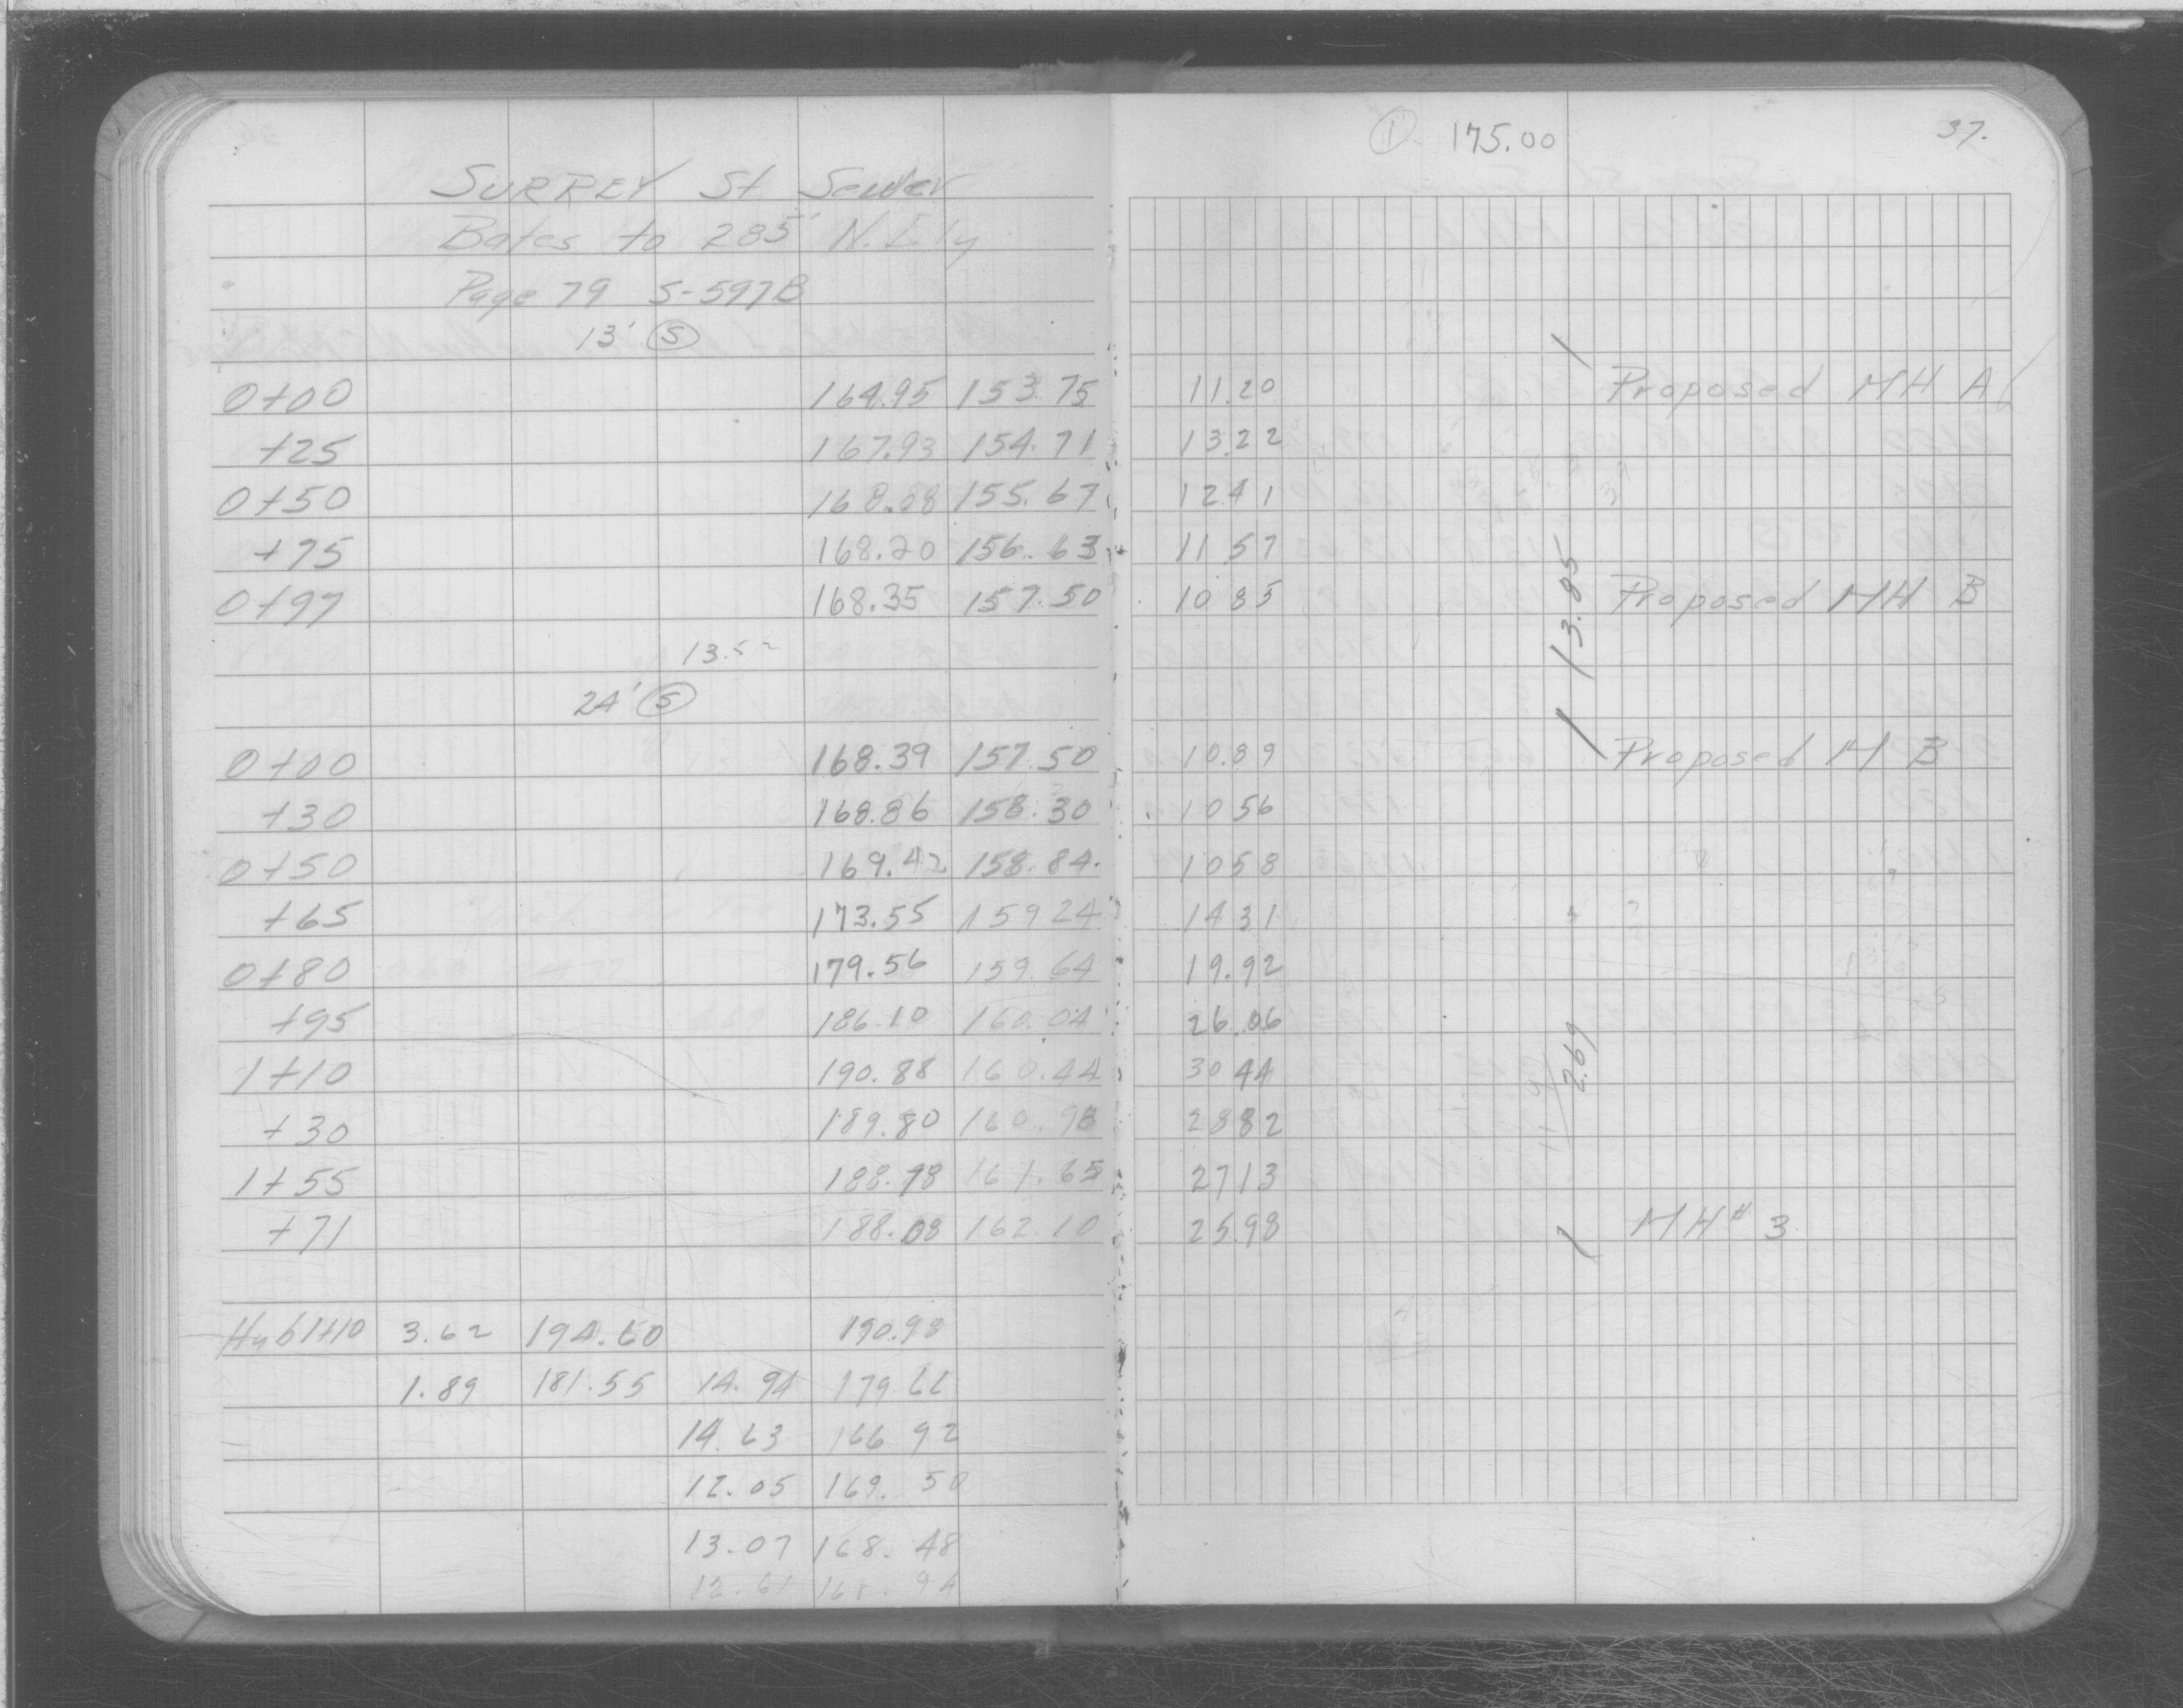 ① 175.00 37.
SURREY St Sewer
Bates to 285' N.Ely
Page 79 S-597B
13' Ⓢ
0+00 164.95 153.75 11.20 Proposed MH A
+25 167.93 154.71 13.22
0+50 155.67 12.41
+75 168.20 156.63 11.57
0+97 168.35 157.50 10.85 Proposed MH B
3.85
13.52
24' Ⓢ
0+00 168.39 157.50 10.89 Proposed M B
+30 168.86 158.30 10.56
0+50 169.42 158.84 10.58
+65 173.55 159.24 14.31
0+80 179.56 159.64 19.92
+95 186.10 160.04 26.06
1+10 190.88 160.44 30.44
2.69
+30 189.80 160.98 28.82
1+55 188.78 161.65 27.13
+71 188.08 162.10 25.98 MH# 3
Hub 1+10 3.62 194.60 190.98
1.89 181.55 14.94 179.66
14.63 166.92
12.05 169.50
13.07 168.48
12.61 168.94